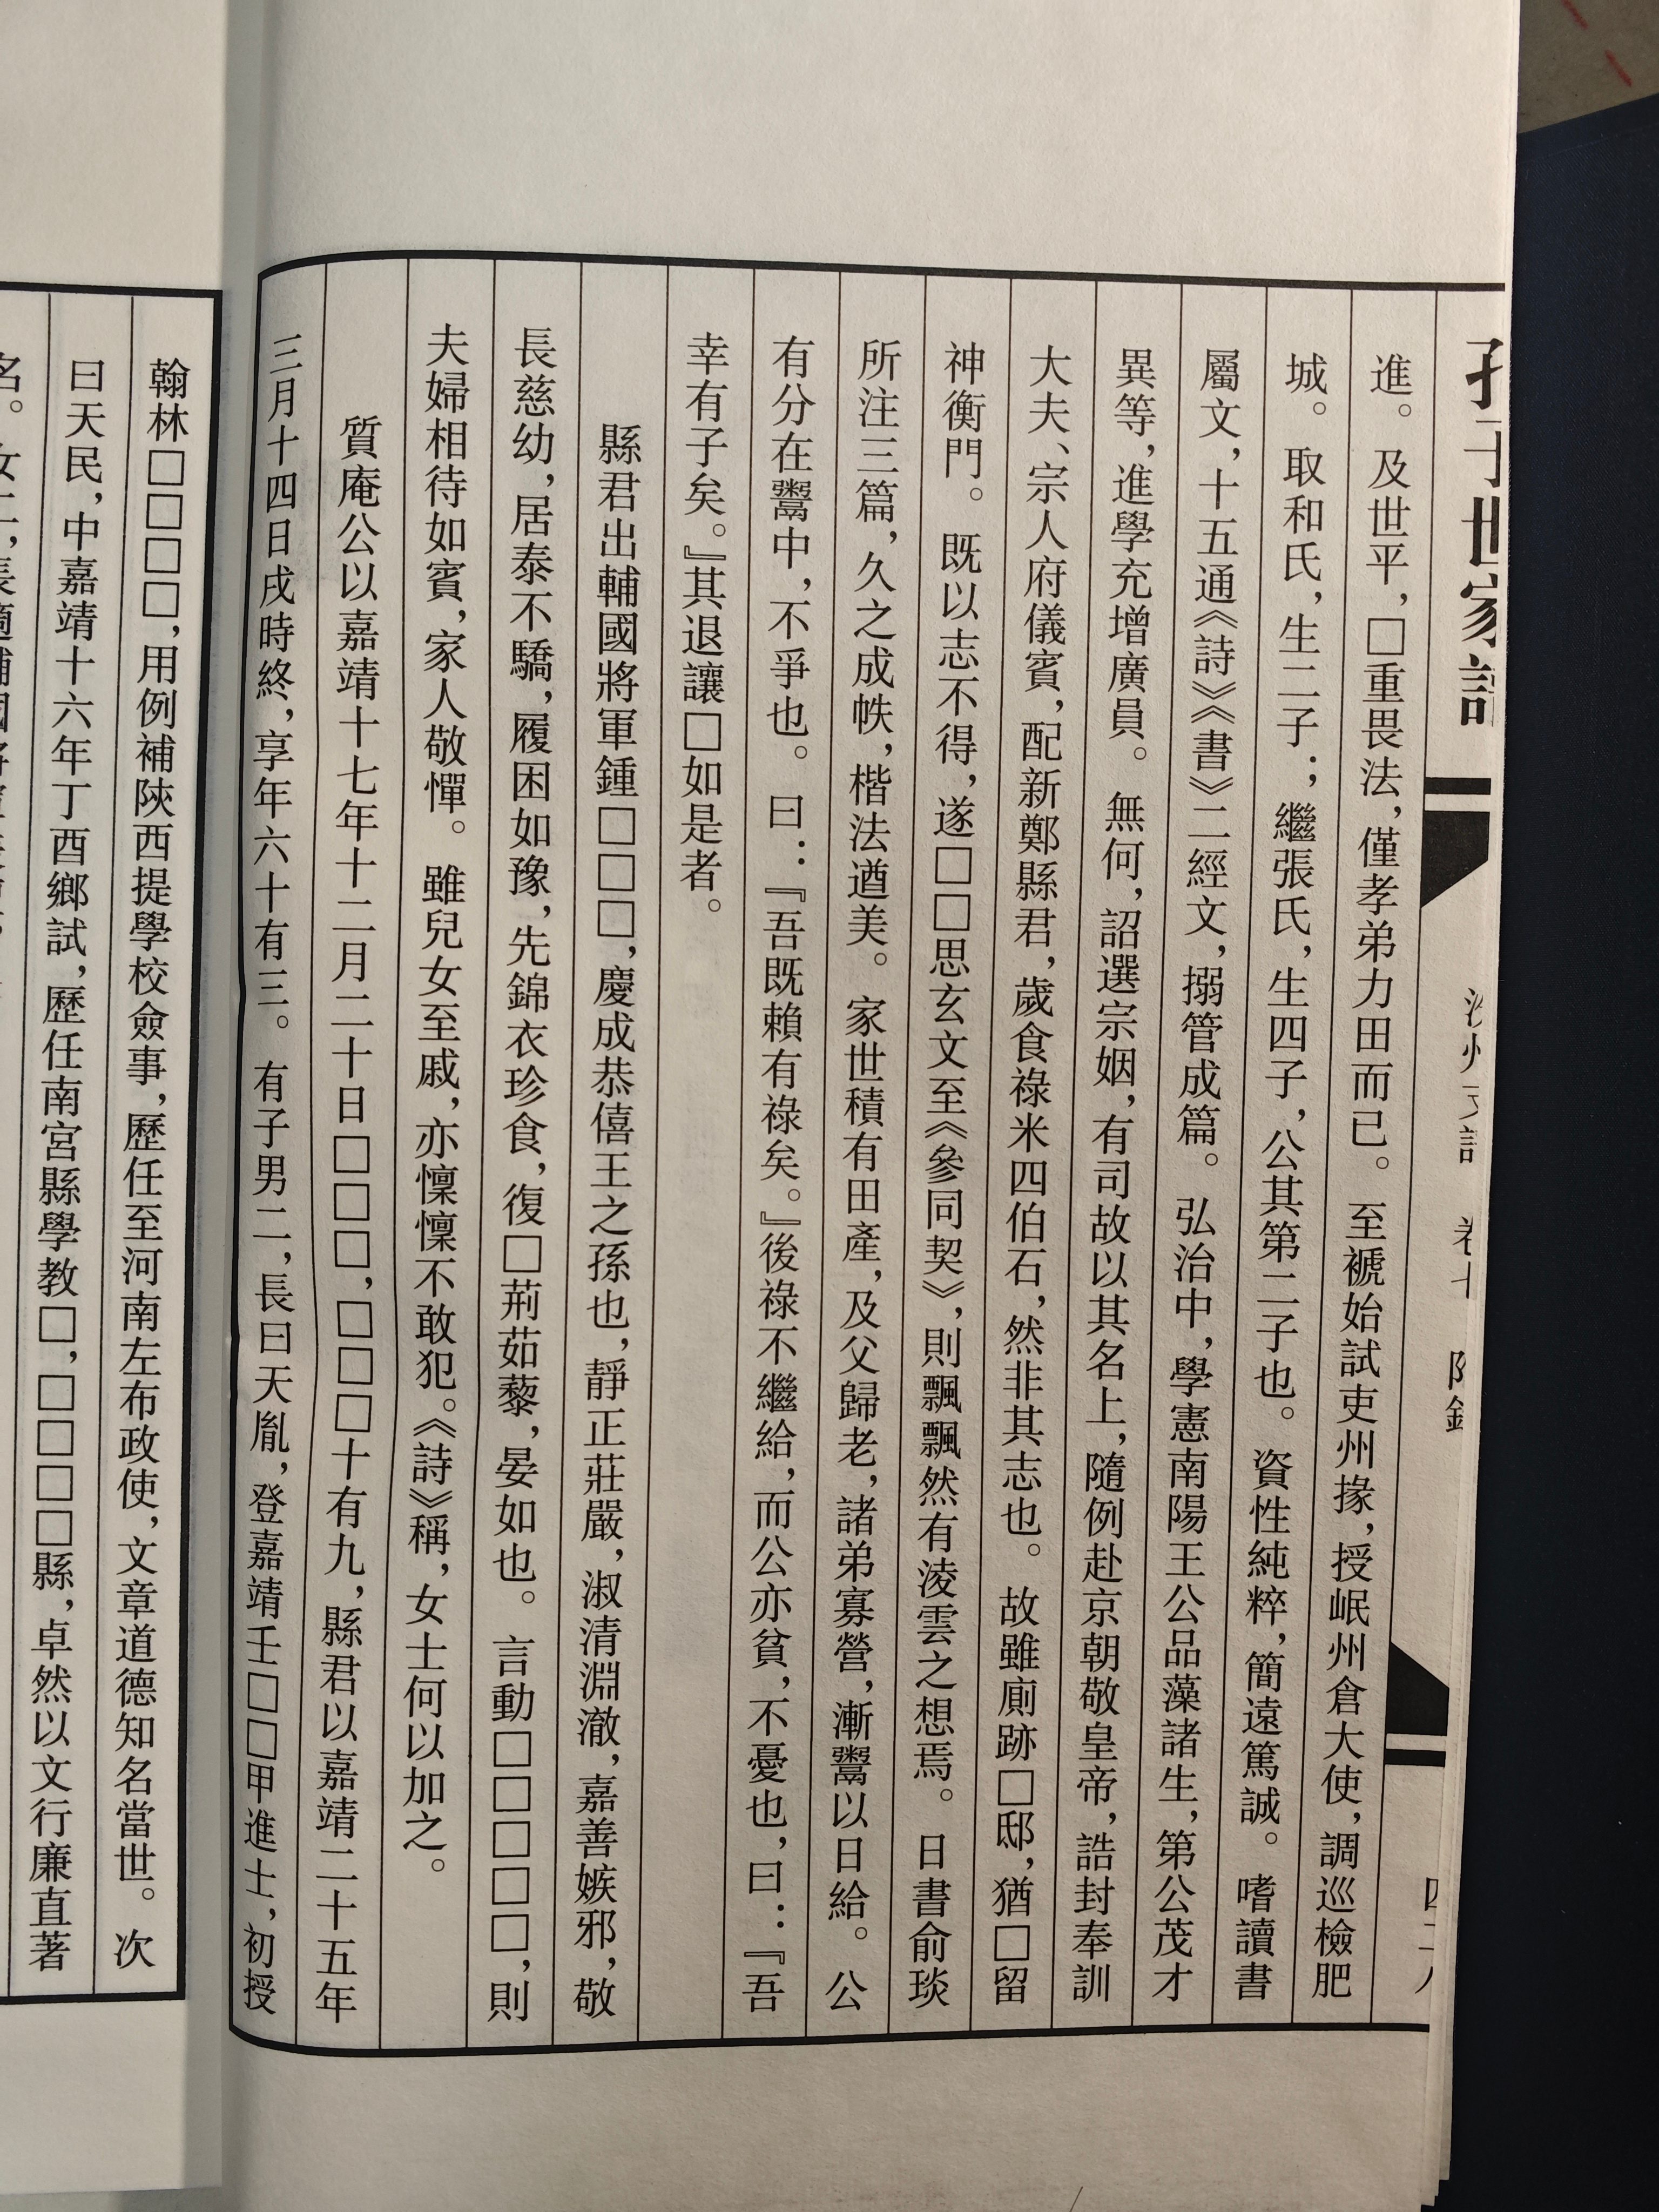 孔子世家譜
卷七
進。及世平，□重畏法，僅孝弟力田而已。至褫始試吏州掾，授岷州倉大使，調巡檢肥
城。取和氏，生二子；繼張氏，生四子，公其第二子也。資性純粹，簡遠篤誠。嗜讀書
屬文，十五通《詩》《書》二經文，搦管成篇。弘治中，學憲南陽王公品藻諸生，第公茂才
異等，進學充增廣員。無何，詔選宗姻，有司故以其名上，隨例赴京朝敬皇帝，誥封奉訓
大夫、宗人府儀賓，配新鄭縣君，歲食祿米四伯石，然非其志也。故雖廁跡□邸，猶□留
神衡門。既以志不得，遂□□思玄文至《參同契》，則飄飄然有淩雲之想焉。日書俞琰
所注三篇，久之成帙，楷法遒美。家世積有田產，及父歸老，諸弟寡營，漸鬻以日給。公
有分在鬻中，不爭也。曰：『吾既賴有祿矣。』後祿不繼給，而公亦貧，不憂也，曰：『吾
幸有子矣。』其退讓□如是者。
縣君出輔國將軍鍾□□□，慶成恭僖王之孫也，靜正莊嚴，淑清淵澈，嘉善嫉邪，敬
長慈幼，居泰不驕，履困如豫，先錦衣珍食，復□荊茹藜，晏如也。言動□□□□□，則
夫婦相待如賓，家人敬憚。雖兒女至戚，亦懍懍不敢犯。《詩》稱，女士何以加之。
質庵公以嘉靖十七年十二月二十日□□□，□□□十有九，縣君以嘉靖二十五年
三月十四日戌時終，享年六十有三。有子男二，長曰天胤，登嘉靖壬□□甲進士，初授
翰林□□□□，用例補陝西提學校僉事，歷任至河南左布政使，文章道德知名當世。次
曰天民，中嘉靖十六年丁酉鄉試，歷任南宮縣學教□，□□□□縣，卓然以文行廉直著
名。